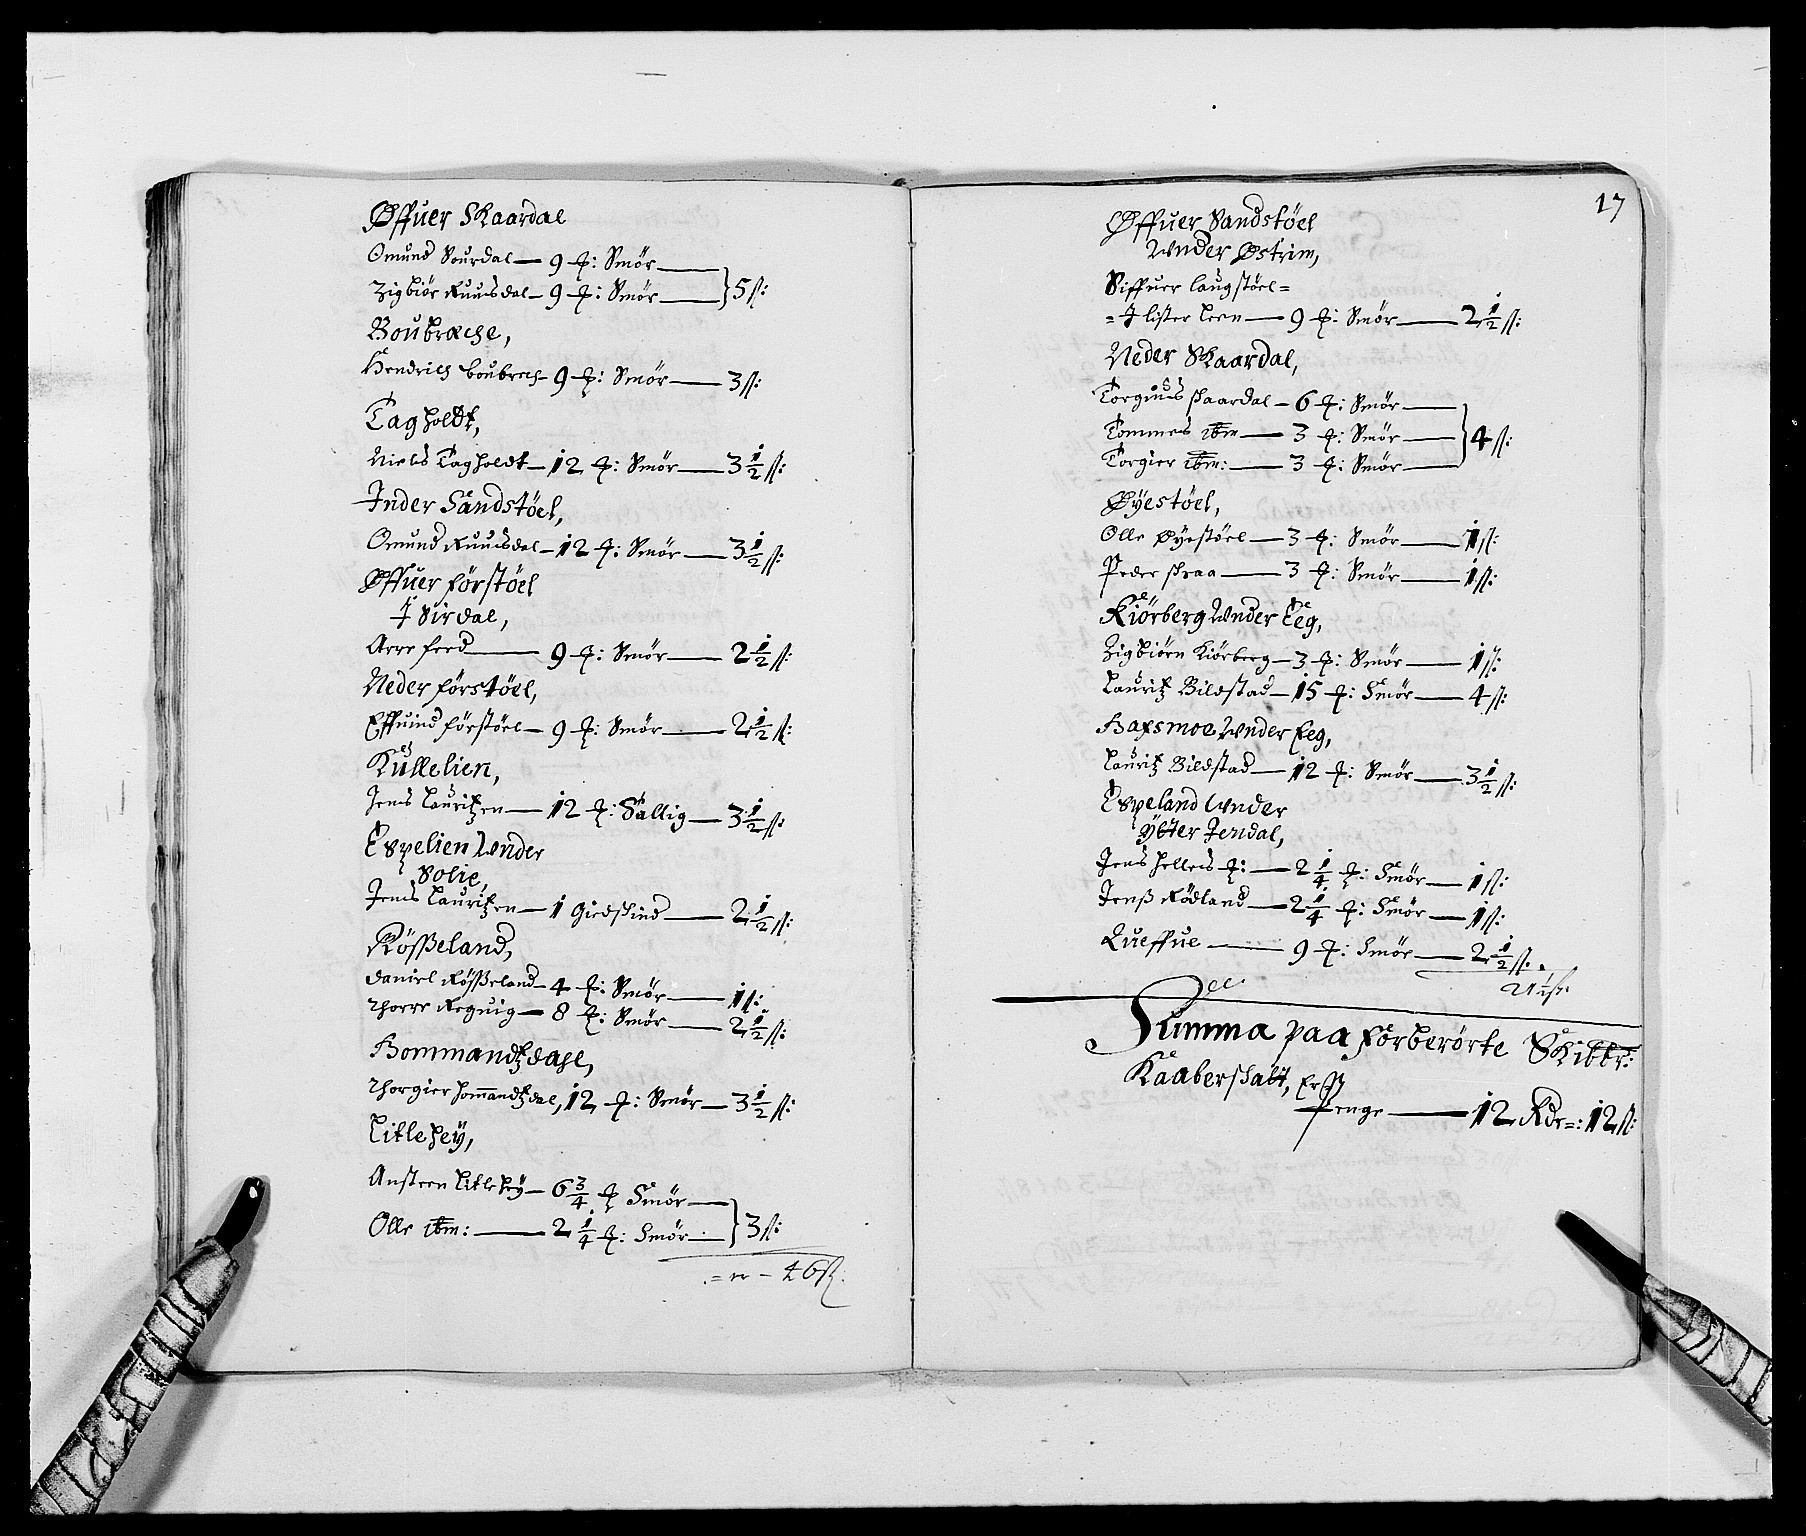 Øffuer Skaardal
Omund Sourdal — 9 ꝑ: Smör —
Zigbiör Ruusdal — 9 ꝑ: Smör — } 5 ſſ:
Boubræche,
Hendrich boubrech — 9 ꝑ: Smör — 3 ſſ:
Tagholdt,
Niels Tagholdt — 12 ꝑ: Smör — 3 1/2 ſſ:
Inder Sandstöel,
Omund Ruusdal — 12 ꝑ: Smör — 3 1/2 ſſ:
Øffuer förstöel
J Sirdal,
Arre feed — 9 ꝑ: Smör — 2 1/2 ſſ:
Neder förstöel,
Effuind förstöel — 9 ꝑ: Smör — 2 1/2 ſſ:
Küllelien,
Jens Lauritzen — 12 ꝑ: Sallig — 3 1/2 ſſ:
Espelien Wnder
Solie,
Jens Lauritzen — 1 Giedskind — 2 1/2 ſſ:
Rösßeland,
Daniel Rösßeland — 4 ꝑ: Smör — 1 ſſ:
Thorre Reguig — 8 ꝑ: Smör — 2 1/2 ſſ:
Hommandtzdahl,
Thorgier hommandtzdal, 12 ꝑ: Smör — 3 1/2 ſſ:
Litlehey,
Ansteen Litlehey — 6 3/4 ꝑ Smör —
Olle ibm: — 2 1/4 ꝑ: Smör — } 3 ſſ:
46 ſſ:
17
Øffuer Sandstöel
Wnder Østrim,
Siffuer laugstöel =
= J lister leen — 9 ꝑ: Smör — 2 1/2 ſſ:
Neder Skaardal,
Torgius skaardal — 6 ꝑ: Smör —
Tommes ibm — 3 ꝑ: Smör — } 4 ſſ:
Torgier ibm: — 3 ꝑ: Smör —
Øyestöel,
Olle Øyestöel — 3 ꝑ: Smör — 1 ſſ:
Peder skraa — 3 ꝑ: Smör — 1 ſſ:
Kiörberg Wnder Eeg,
Zigbiörn Kiörberg — 3 ꝑ: Smör — 1 ſſ:
Lauritz Bildstad — 15 ꝑ: Smör — 4 ſſ:
Hafsmoe Wnder Eeg,
Lauritz Bildstad — 12 ꝑ: Smör — 3 1/2 ſſ:
Espeland Wnder
ÿtter Jendal,
Jens helleis ꝑ: — 2 1/4 ꝑ: Smör — 1 ſſ:
Jenß Rödland — 2 1/4 ꝑ: Smör — 1 ſſ:
Queffue — 9 ꝑ: Smör — 2 1/2 ſſ:
Summa paa förberörte Skibbr:
Kaaberskatt, Er
Penge — 12 Rdr: 12 ſſ: